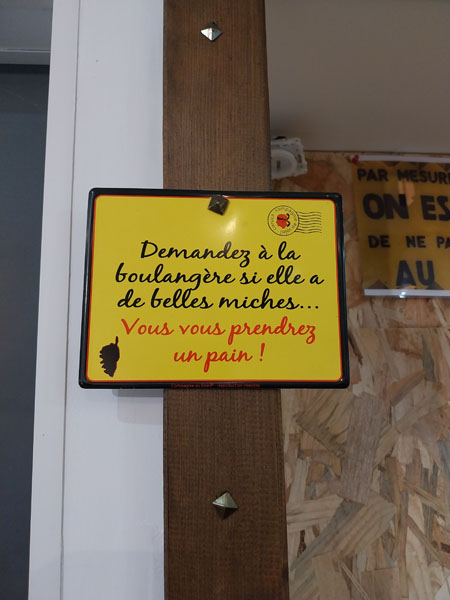 Demandez à la
boulangère si elle a
de belles miches...
Vous vous prendrez
un pain !
PAR MESURE
ON ES
DE NE PA
AU